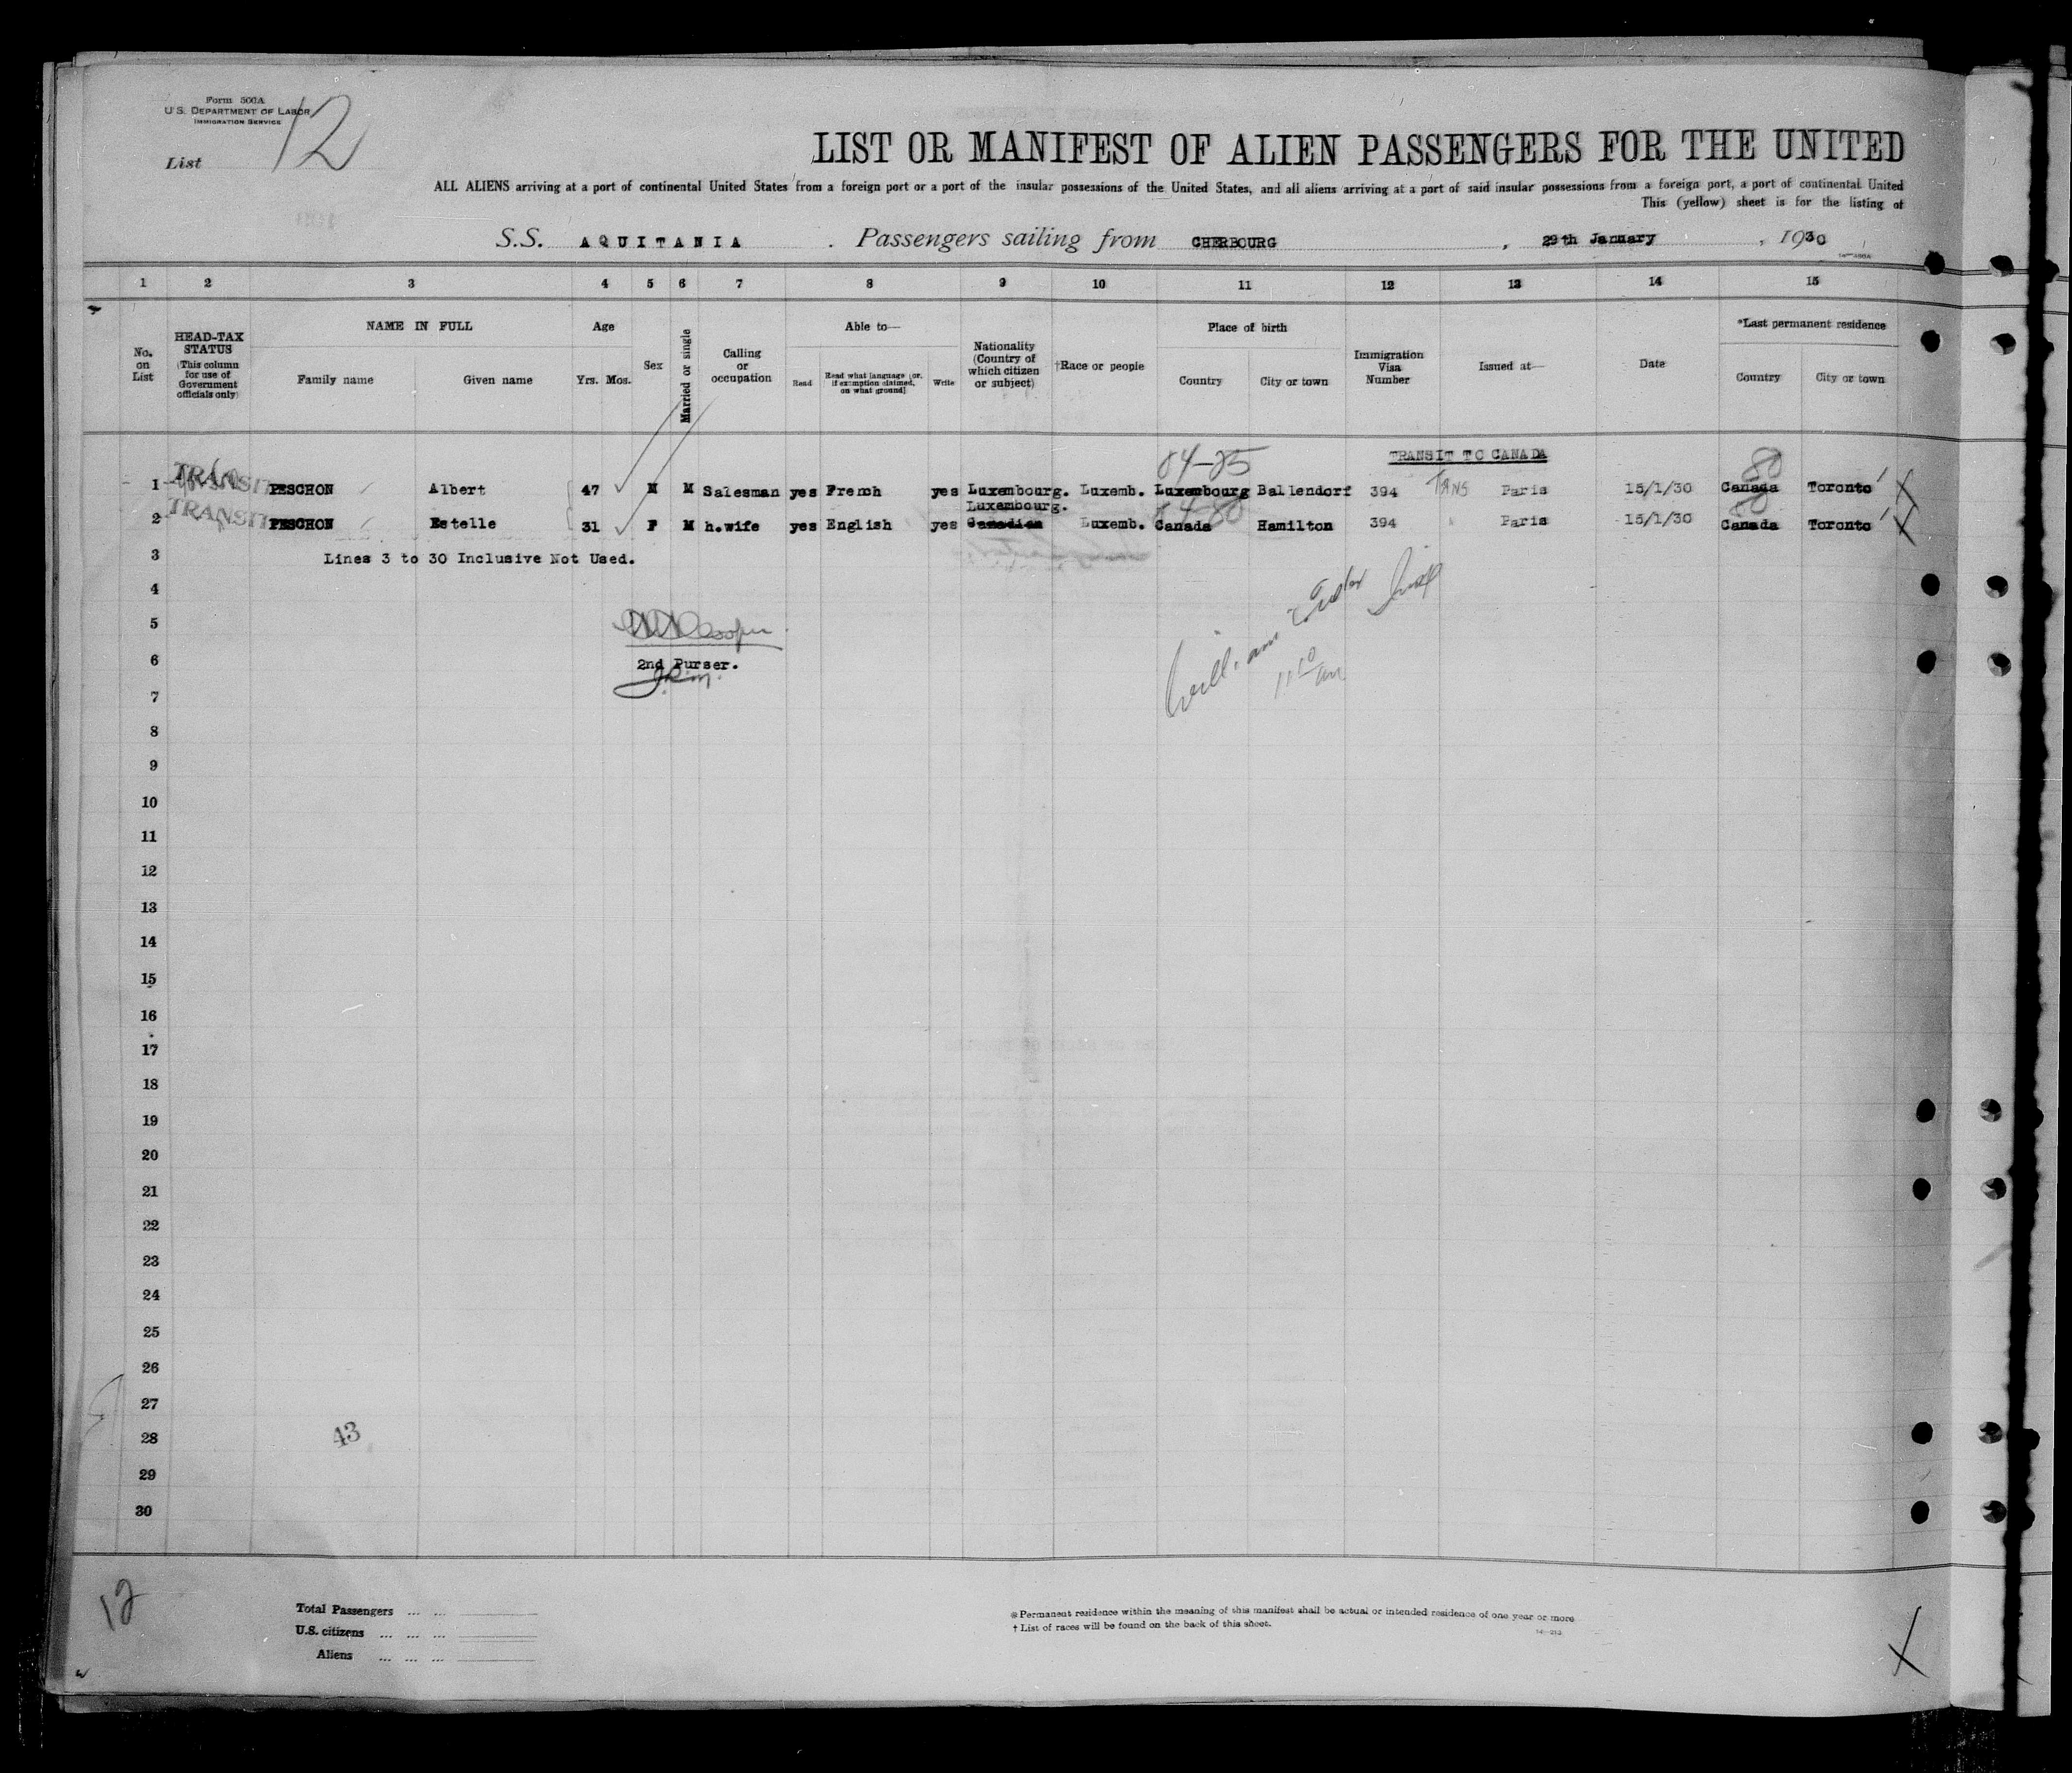 Form 500A
U.S. DEPARTMENT OF LABOR
IMMIGRATION SERVICE
List 12
LIST OR MANIFEST OF ALIEN PASSENGERS FOR THE UNITED
ALL ALIENS arriving at a port of continental United States from a foreign port or a port of the insular possessions of the United States, and all aliens arriving at a port of said insular possessions from a foreign port, a port of continental United
This (yellow) sheet is for the listing of
S.S. AQUITANIA . Passengers sailing from CHERBOURG , 29th January , 1930
1 2 3 4 5 6 7 8 9 10 11 12 13 14 15
No. on List
HEAD-TAX STATUS (This column for use of Government officials only)
NAME IN FULL
Family name
Given name
Age
Yrs. Mos.
Sex
Married or single
Calling or occupation
Able to—
Read
Read what language [or, if exemption claimed, on what ground]
Write
Nationality (Country of which citizen or subject)
†Race or people
Place of birth
Country
City or town
Immigration Visa Number
Issued at—
Date
*Last permanent residence
Country
City or town
84-85
TRANSIT TO CANADA
80
1 TRANSIT PESCHON Albert 47 M M Salesman yes French yes Luxembourg. Luxemb. Luxembourg Ballendorf 394 Trns Paris 15/1/30 Canada Toronto
Luxembourg. 84-80 80
2 TRANSIT PESCHON Estelle 31 F M h.wife yes English yes Canadian Luxemb. Canada Hamilton 394 Paris 15/1/30 Canada Toronto
3 Lines 3 to 30 Inclusive Not Used.
4
5 Cooper
6 2nd Purser.
7
William
11 10 am
8
9
10
11
12
13
14
15
16
17
18
19
20
21
22
23
24
25
26
27
28 43
29
30
12
Total Passengers ... ...
U.S. citizens ... ... ...
Aliens ... ... ...
* Permanent residence within the meaning of this manifest shall be actual or intended residence of one year or more
† List of races will be found on the back of this sheet.